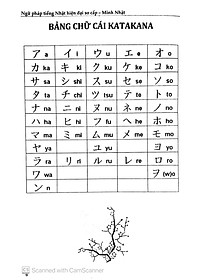 Ngữ pháp tiếng Nhật hiện đại sơ cấp – Minh Nhật
BẢNG CHỮ CÁI KATAKANA
ア a イ i ウ u エ e オ o
カ ka キ ki ク ku ケ ke コ ko
サ sa シ shi ス su セ se ソ so
タ ta チ chi ツ tsu テ te ト to
ナ na ニ ni ヌ nu ネ ne ノ no
ハ ha ヒ hi フ fu ヘ he ホ ho
マ ma ミ mi ム mu メ me モ mo
ヤ ya ユ yu ヨ yo
ラ ra リ ri ル ru レ re ロ ro
ワ wa ヲ (w)o
ン n
CS Scanned with CamScanner